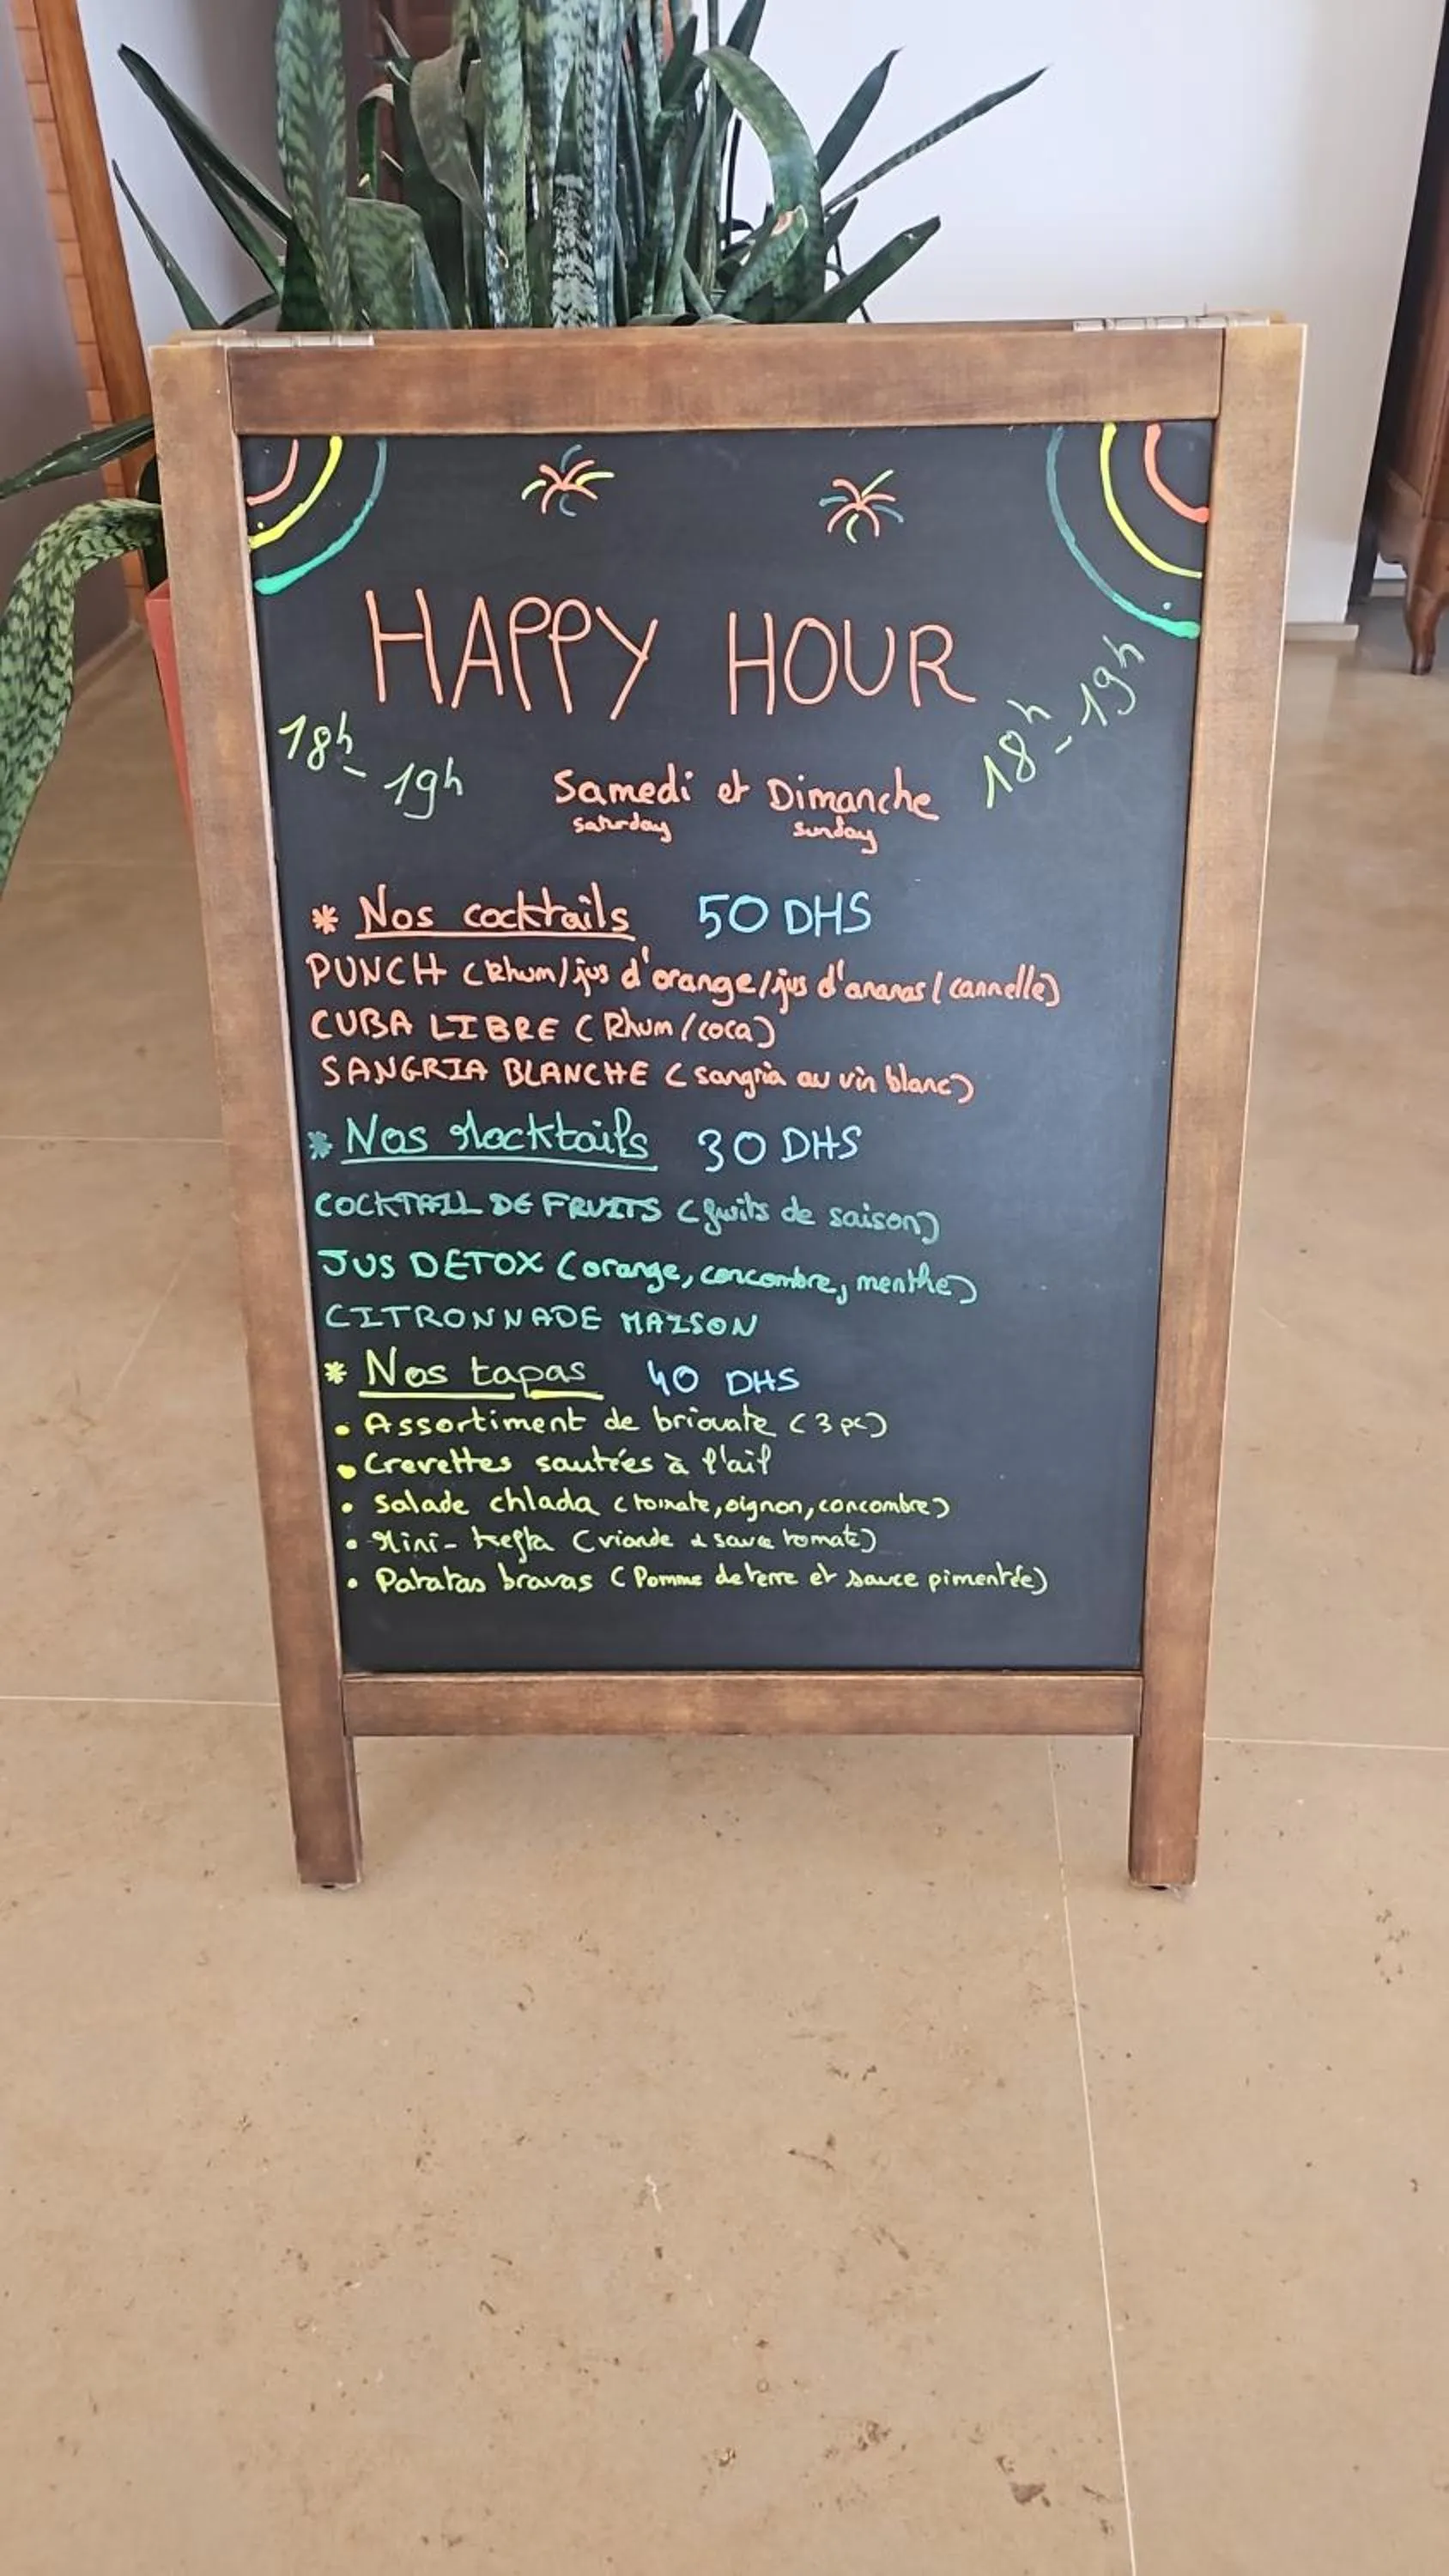 HAPPY HOUR
18h - 19h
18h - 19h
Samedi et Dimanche
saturday sunday
* Nos cocktails 50 DHS
PUNCH (Rhum/jus d'orange/jus d'ananas/cannelle)
CUBA LIBRE (Rhum/coca)
SANGRIA BLANCHE (sangria au vin blanc)
* Nos Mocktails 30 DHS
COCKTAIL DE FRUITS (fruits de saison)
JUS DETOX (orange, concombre, menthe)
CITRONNADE MAISON
* Nos tapas 40 DHS
• Assortiment de briouate (3 pc)
• Crevettes sautées à l'ail
• Salade chlada (tomate, oignon, concombre)
• Mini-kefta (viande & sauce tomate)
• Patatas bravas (Pomme de terre et sauce pimentée)